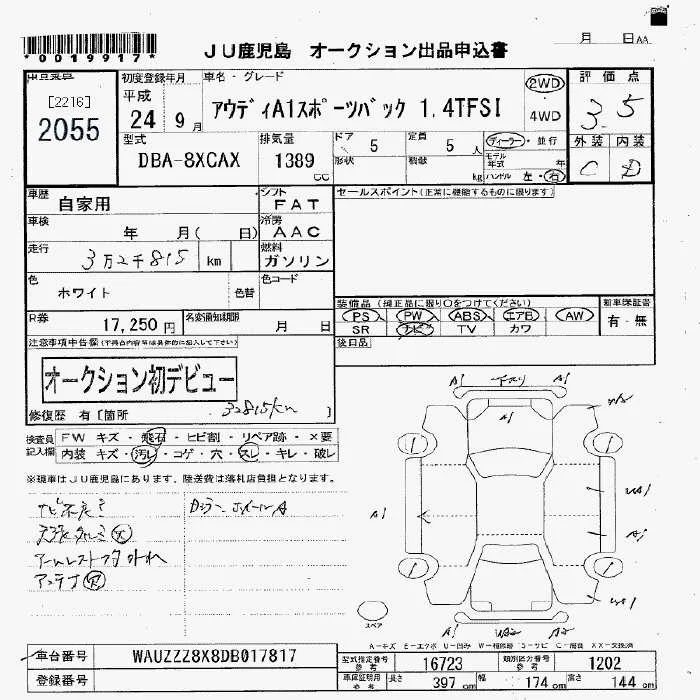 月 日AA
*0019917*
JU鹿児島 オークション出品申込書
[2216]
2055
初度登録年月 車名・グレード
平成
24 9月
アウディA1スポーツバック 1.4TFSI
2WD
・
4WD
評価点
3.5
外装 内装
C D
型式
DBA-8XCAX
排気量
1389 cc
ドア 5
定員 5人
形状
積載 kg
ディーラー・並行
モデル年式 年
ハンドル 左・右
車歴
自家用
シフト
FAT
セールスポイント(正常に機能するものに限ります)
車検
年 月( 日)
冷房
AAC
走行
3万2千815 km
燃料
ガソリン
色
ホワイト
色替
色コード
R券
17,250円
名変通知期限
月 日
装備品(純正品に限り○をつけてください)
PS PW ABS エアB AW
SR ナビ TV カワ
新車保証書
有・無
後日品
注意事項申告欄(不具合内容等は具体的に記入して下さい)
オークション初デビュー
修復歴 有[箇所 32815km ]
検査員記入欄
FW キズ・飛石・ヒビ割・リペア跡・×要
内装 キズ・汚レ・コゲ・穴・スレ・キレ・破レ
※現車はJU鹿児島にあります、陸送費は落札店負担となります。
ナビ不良ミ
天張タルミ 大
アームレストフタ外れ
アンテナ欠
A1 A1
A1
A1
A1
A1 W2 A2
スペア
A-キズ E-エクボ U-凹み W-補修跡 S-サビ C-腐食 XX-交換済
車台番号 WAUZZZ8X8DB017817
型式指定番号 参考 16723
類別区分番号 参考 1202
登録番号
車庫証明用 参考
長さ 397 cm
幅 174 cm
高さ 144 cm